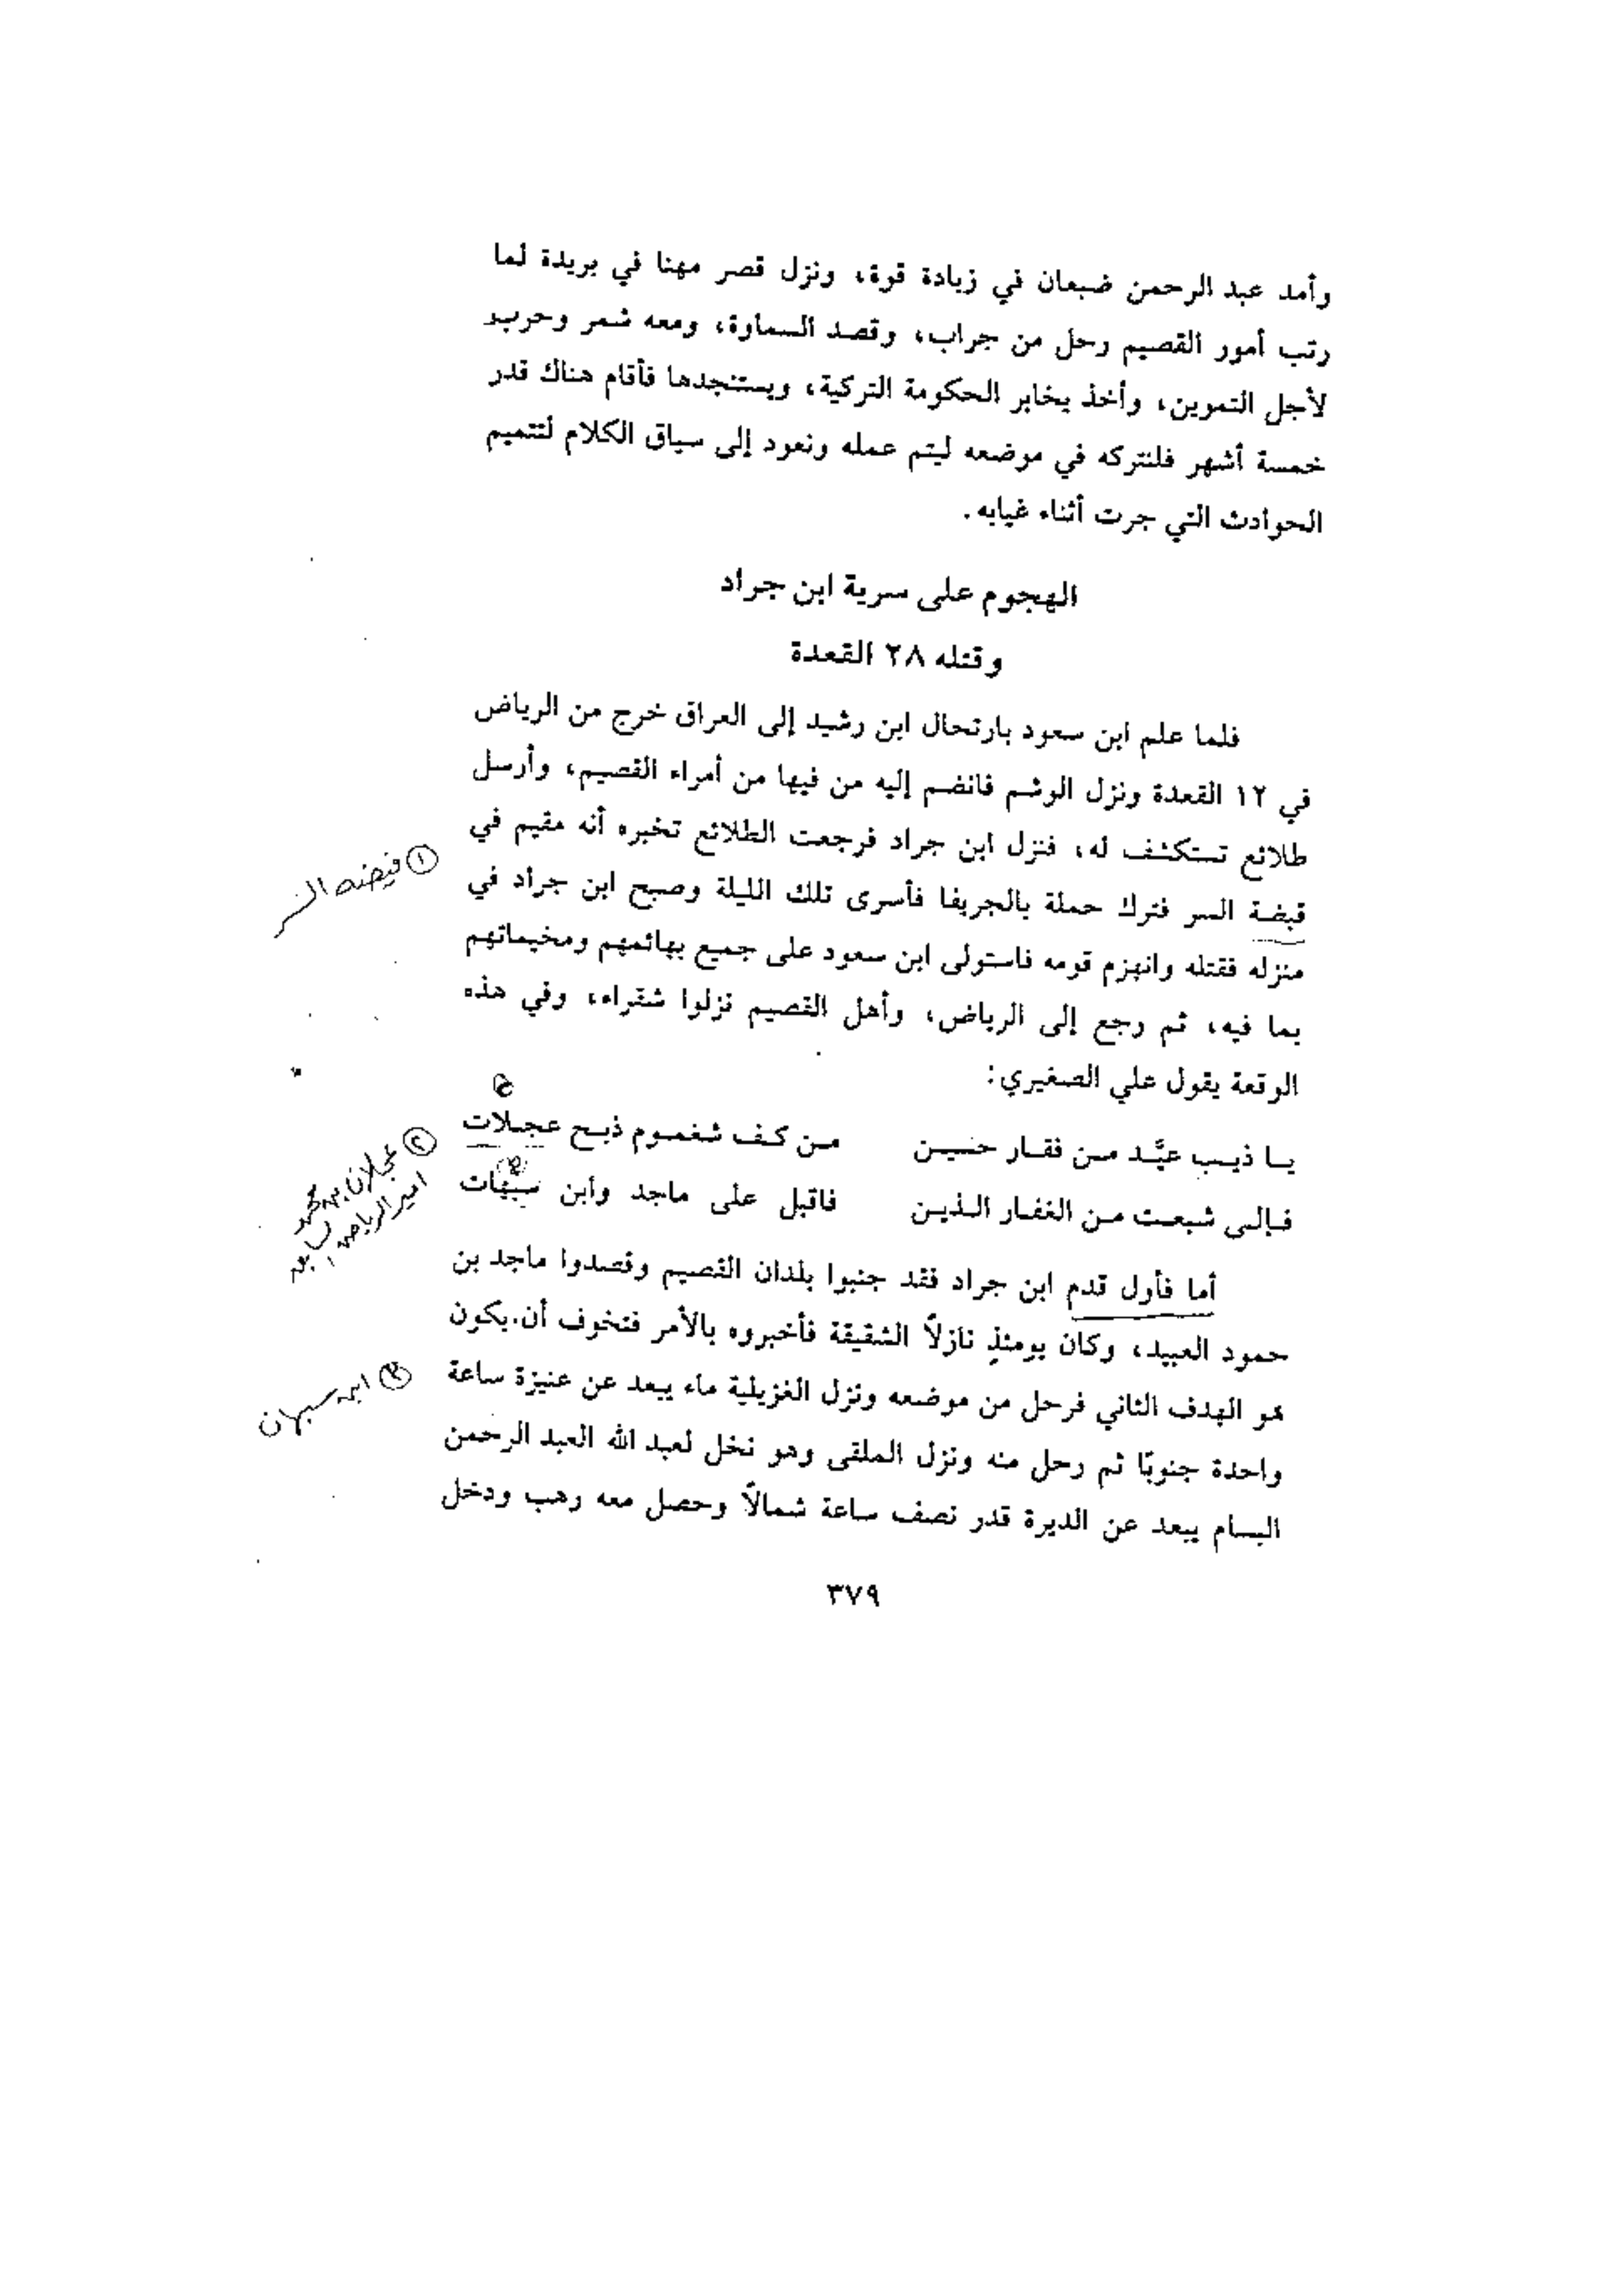 وأمد عبد الرحمن ضبعان في زيادة قوة، ونزل قصر مهنا في بريدة لما
رتب أمور القصيم رحل من جراب، وقصد السماوة، ومعه شمر وحرب
لأجل التموين، وأخذ يخابر الحكومة التركية، ويستنجدها فأقام هناك قدر
خمسة أشهر فلنتركه في موضعه ليتم عمله ونعود إلى سياق الكلام لتتميم
الحوادث التي جرت أثناء غيابه.
الهجوم على سرية ابن جراد
وقتله ٢٨ القعدة
فلما علم ابن سعود بارتحال ابن رشيد إلى العراق خرج من الرياض
في ١٢ القعدة ونزل الوشم فانضم إليه من فيها من أمراء القصيم، وأرسل
طلائع تستكشف له، فنزل ابن جراد فرجعت الطلائع تخبره أنه مقيم في
قبضة السر فترك حملة بالجريفا فأسرى تلك الليلة وصبح ابن جراد في
منزله فقتله وانهزم قومه فاستولى ابن سعود على جميع بهائمهم ومخيماتهم
بما فيه، ثم رجع إلى الرياض، وأهل القصيم نزلوا شقراء، وفي هذه
الوقعة يقول علي الصغيري:
يا ذيب عيَّد من فقار حسين من كف شغموم ذبح عجلات
فإلى شبعت من الغفار الذين فاقبل على ماجد وابن سبهات
أما فأول قدم ابن جراد فقد جنبوا بلدان القصيم وقصدوا ماجد بن
حمود العبيد، وكان يومئذٍ نازلاً الشقيقة فأخبروه بالأمر فتخوف أن يكون
هو الهدف الثاني فرحل من موضعه ونزل الغزيلية ماء يبعد عن عنيزة ساعة
واحدة جنوبًا ثم رحل منه ونزل الملقى وهو نخل لعبد الله العبد الرحمن
البسام يبعد عن الديرة قدر نصف ساعة شمالاً وحصل معه رهب ودخل
٣٧٩
① فيضة السر
② عجلان بن محمد
امير الرياض
ابن سبهان